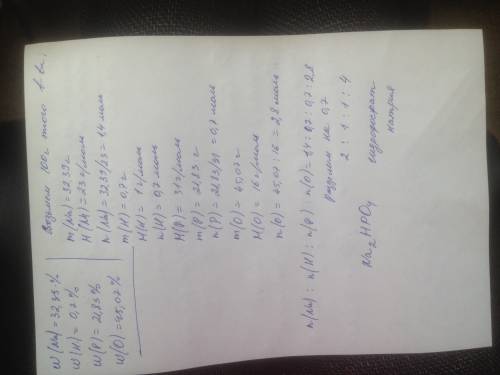 W(Na) = 32,39 %
W(H) = 0,7 %
W(P) = 21,83 %
W(O) = 45,07 %
Возьмем 100г этого в-ва.
m(Na) = 32,39 г
M(Na) = 23 г/моль
n(Na) = 32,39/23 = 1,4 моль
m(H) = 0,7 г
M(H) = 1 г/моль
n(H) = 0,7 моль
M(P) = 31 г/моль
m(P) = 21,83 г
n(P) = 21,83/31 = 0,7 моль
m(O) = 45,07 г
M(O) = 16 г/моль
n(O) = 45,07 : 16 = 2,8 моль
n(Na) : n(H) : n(P) : n(O) = 1,4 : 0,7 : 0,7 : 2,8
разделим на 0,7
2 : 1 : 1 : 4
Na2HPO4 гидрофосфат
натрия